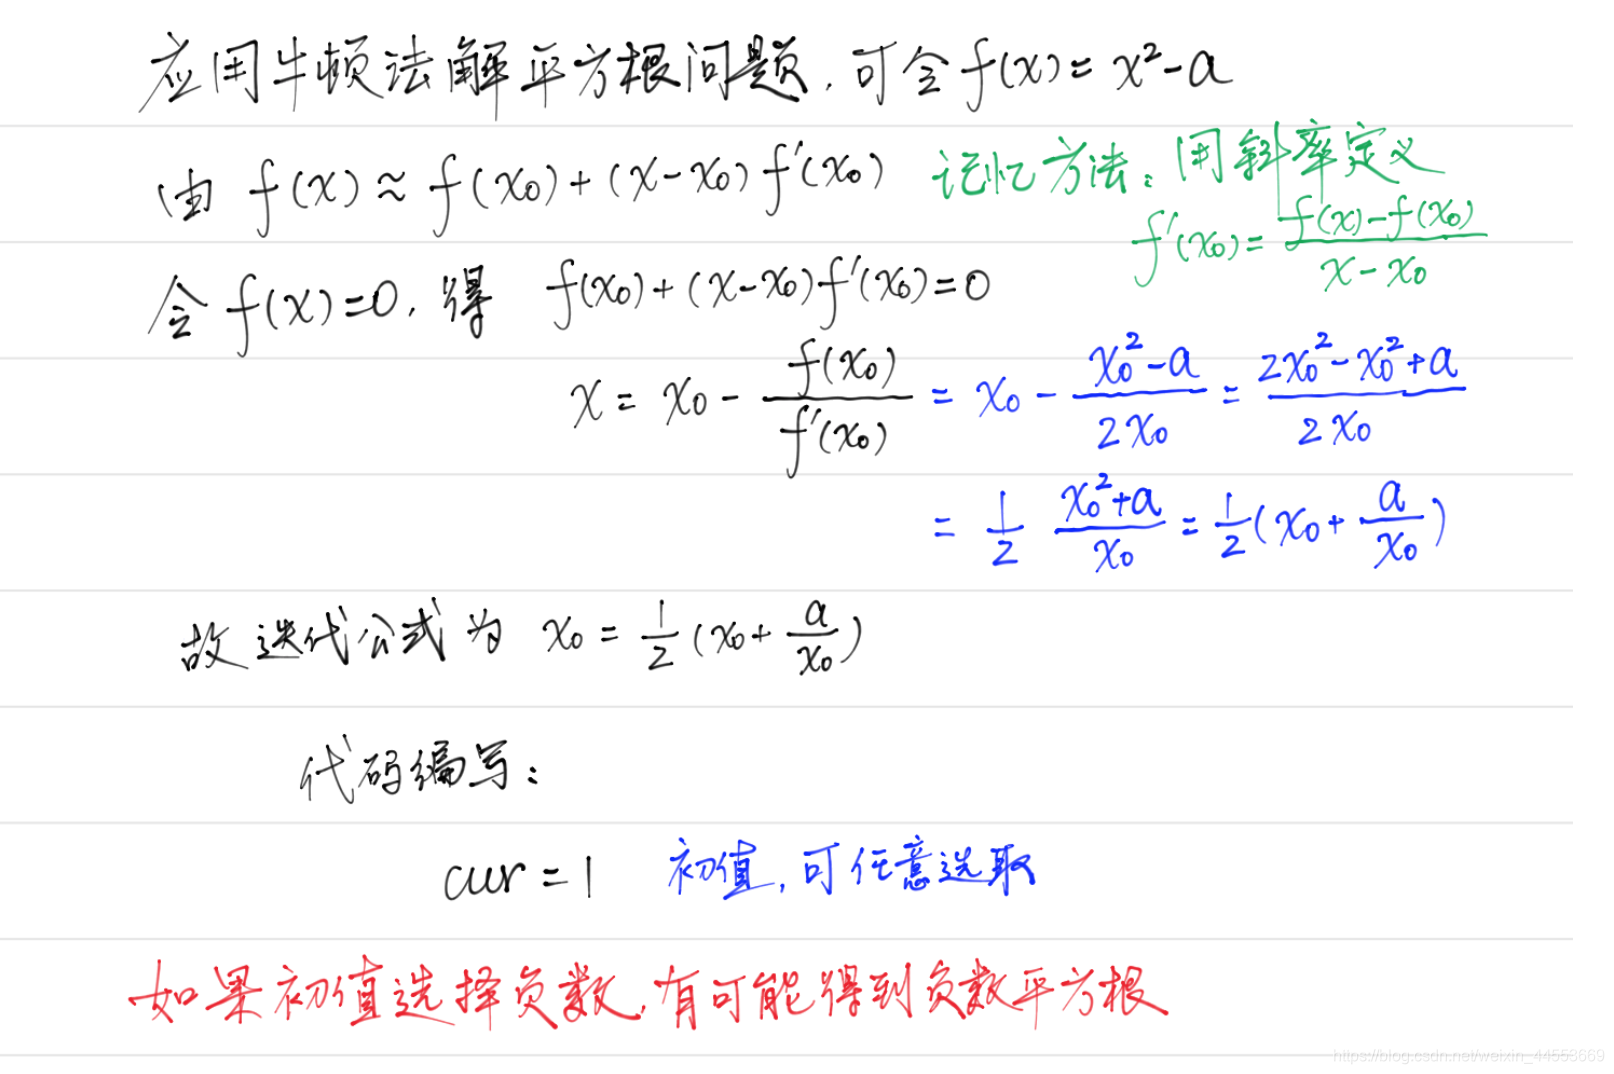 应用牛顿法解平方根问题，可令 f(x) = x² - a
由 f(x) ≈ f(x₀) + (x - x₀) f'(x₀)
记忆方法：用斜率定义
f'(x₀) = (f(x) - f(x₀)) / (x - x₀)
令 f(x) = 0，得 f(x₀) + (x - x₀) f'(x₀) = 0
x = x₀ - f(x₀) / f'(x₀) = x₀ - (x₀² - a) / 2x₀ = (2x₀² - x₀² + a) / 2x₀
= 1/2 (x₀² + a) / x₀ = 1/2 (x₀ + a/x₀)
故迭代公式为 x₀ = 1/2 (x₀ + a/x₀)
代码编写：
cur = 1 初值，可任意选取
如果初值选择负数，有可能得到负数平方根
https://blog.csdn.net/weixin_44553669